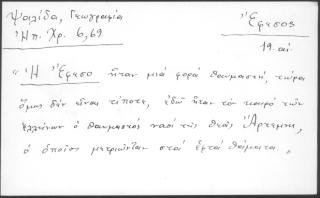 Ψαλίδα, Γεωγραφία
Ἠπ. Χρ. 6, 69
Ἔφεσος
19. αἰ.
"Ἡ Ἔφεσο ἦταν μιά φορά θαυμαστή, τώρα
ὅμως δέν εἶναι τίποτε, ἐδῶ ἦταν τόν καιρό τῶν
ἑλλήνων ὁ θαυμαστός ναός τῆς θεᾶς Ἄρτεμης,
ὁ ὁποῖος μετριῶνταν στά ἑφτά θαύματα."